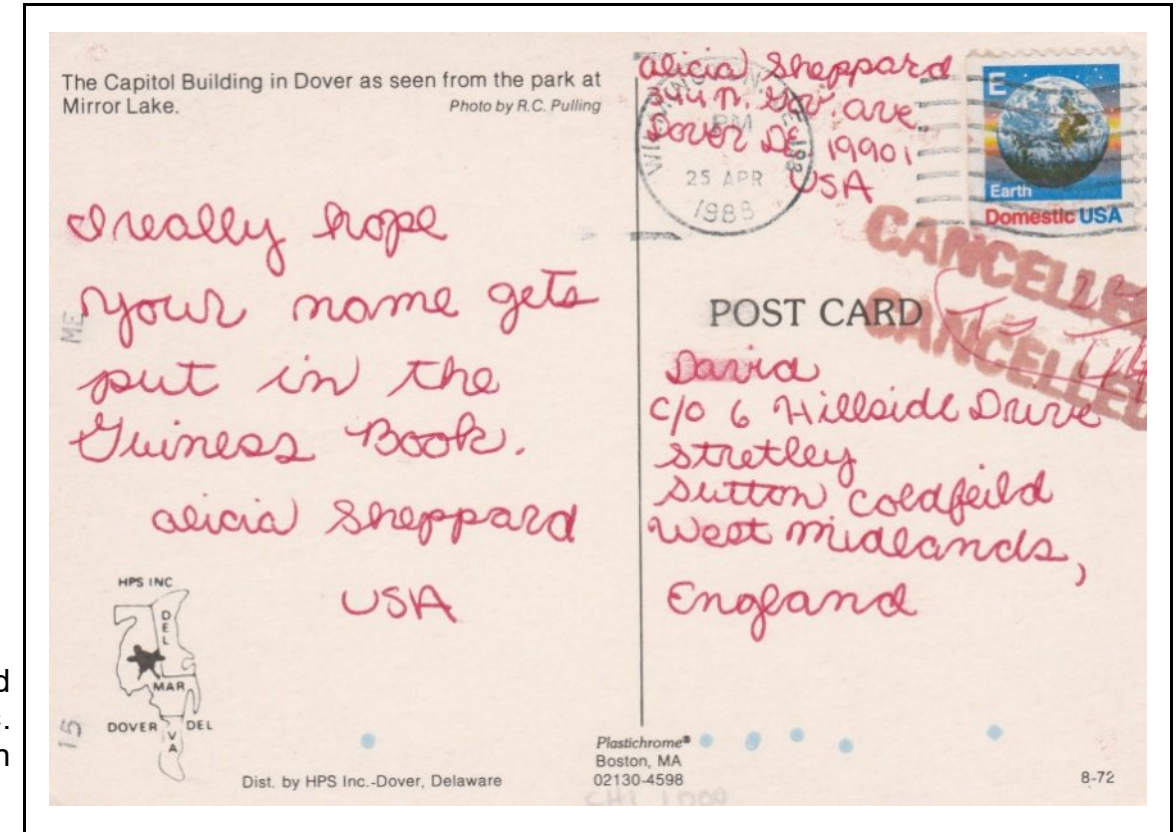 The Capitol Building in Dover as seen from the park at
Mirror Lake.
Photo by R.C. Pulling
alicia Sheppard
344 n. Gov. ave.
Dover DE 19901
USA
WILMINGTON, DE 198
PM
25 APR
1988
E
Earth
Domestic USA
CANCELLED
CANCELLED
I really hope
your name gets
put in the
Guiness Book.
alicia Sheppard
USA
POST CARD
David
c/o 6 Hillside Drive
stretley
Sutton coldfeild
West midlands,
England
ME
15
HPS INC
DEL
MAR
VA
DOVER DEL
Dist. by HPS Inc.-Dover, Delaware
Plastichrome®
Boston, MA
02130-4598
8-72